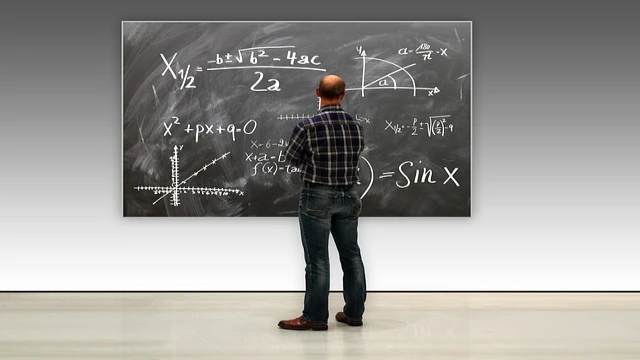 X₁/₂ = (-b ± √(b² - 4ac)) / 2a
y
a = 180/π · x
a
x
x² + px + q = 0
X₁/₂ = -p/2 ± √((p/2)² - q)
y
x
x + a =
f(x) =
) = Sin X